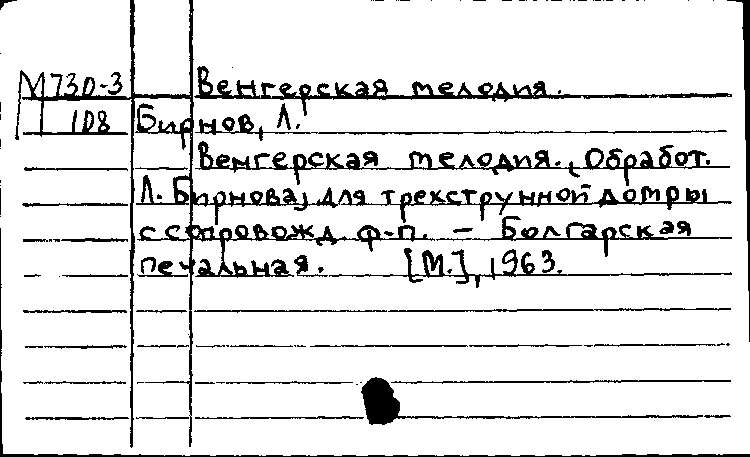 М730-3 Венгерская мелодия.
108 Бирнов, Л.
Венгерская мелодия. (Обработ.
Л. Бирнова) для трехструнной домры
с сопровожд. ф-п. — Болгарская
печальная. [М.], 1963.